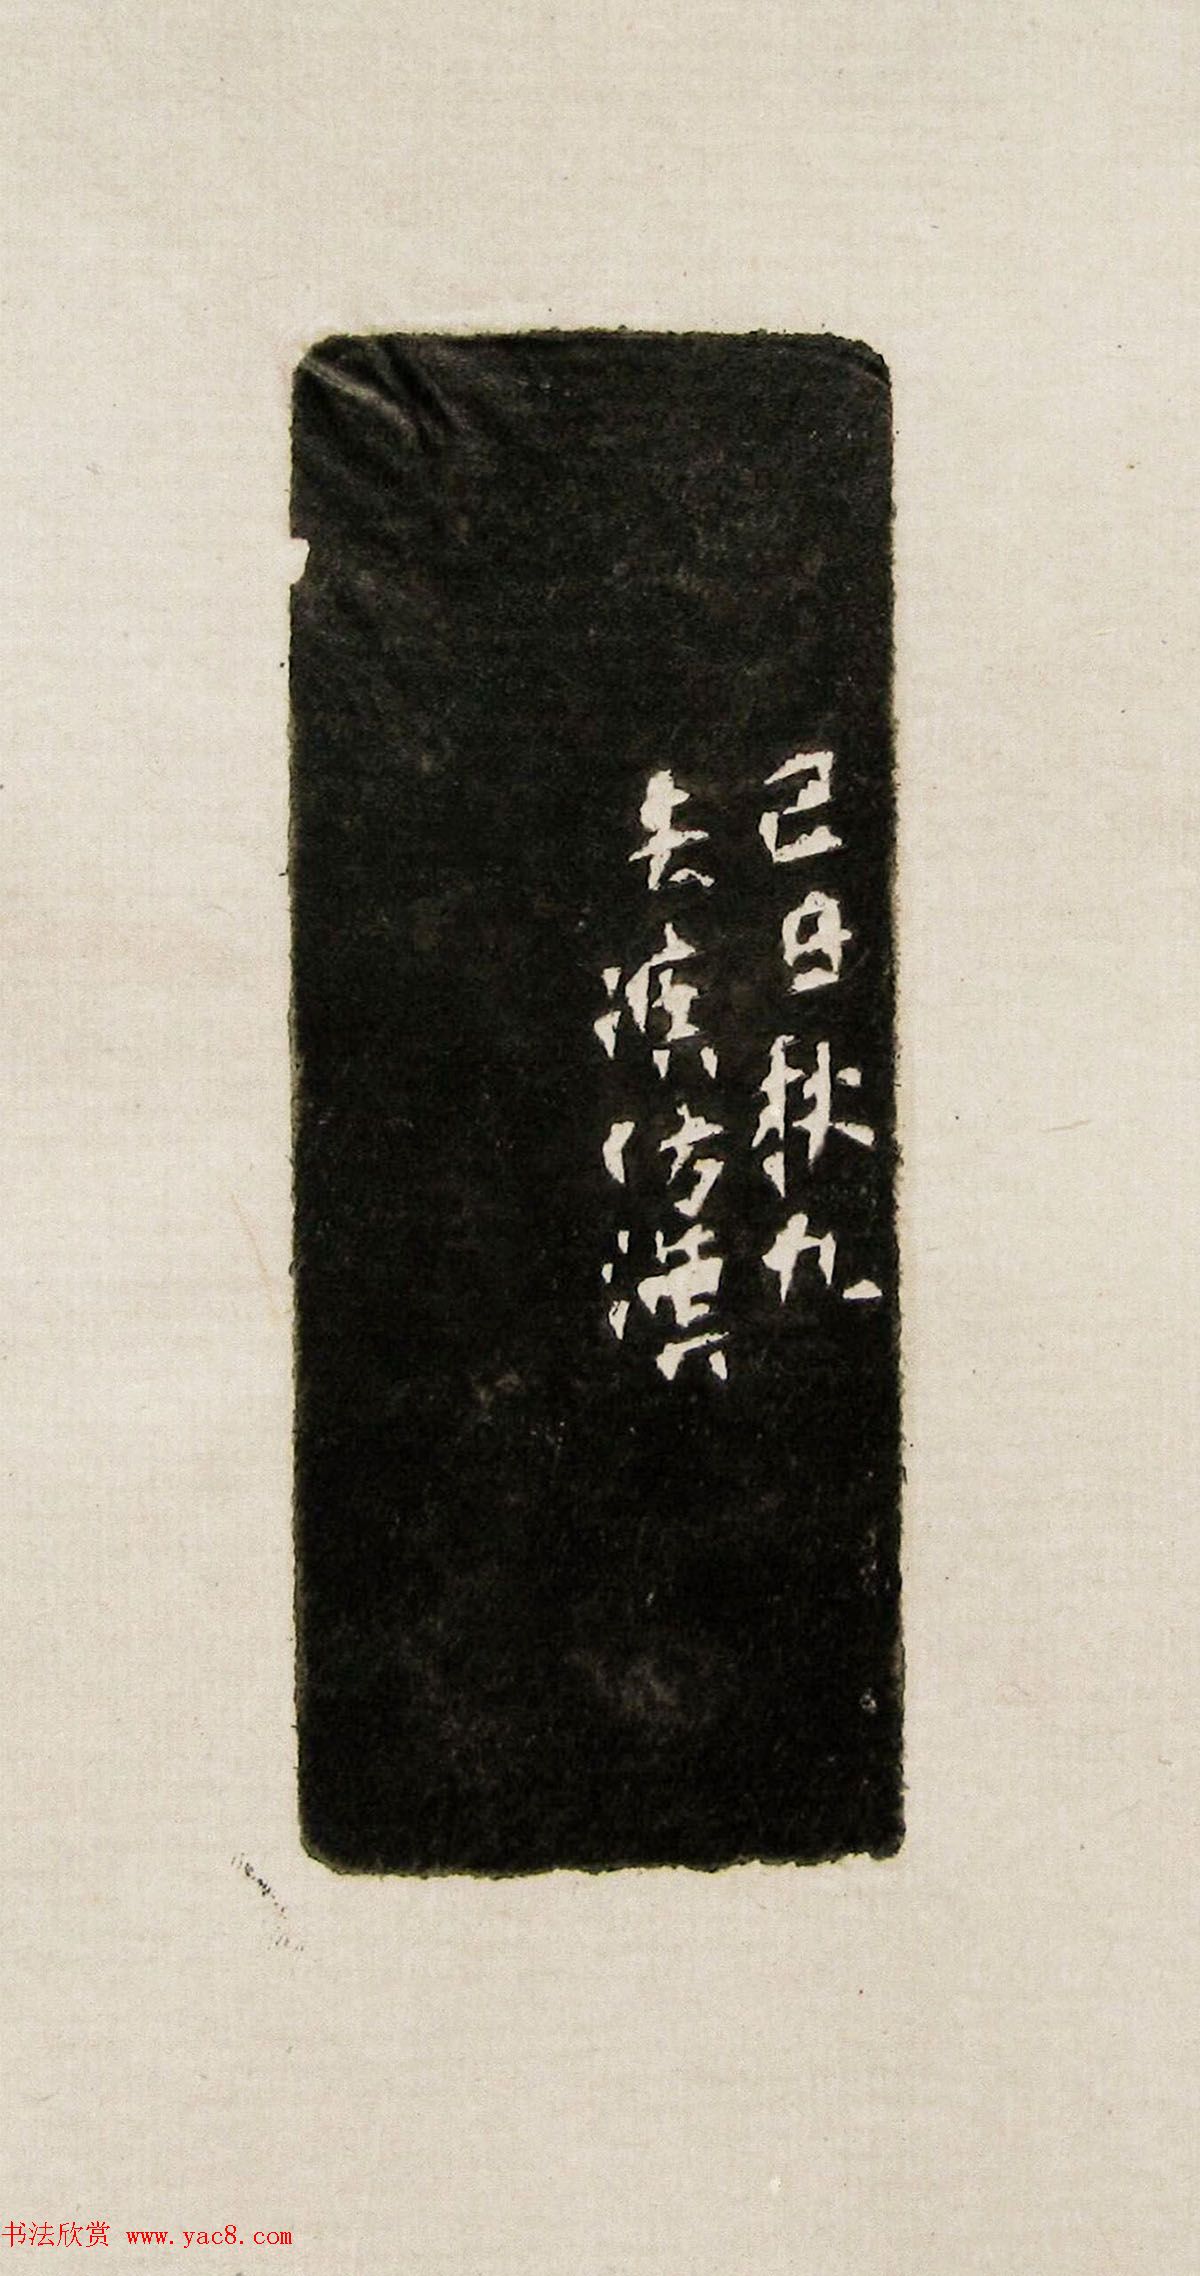 己丑秋九
演仿漢
书法欣赏 www.yac8.com